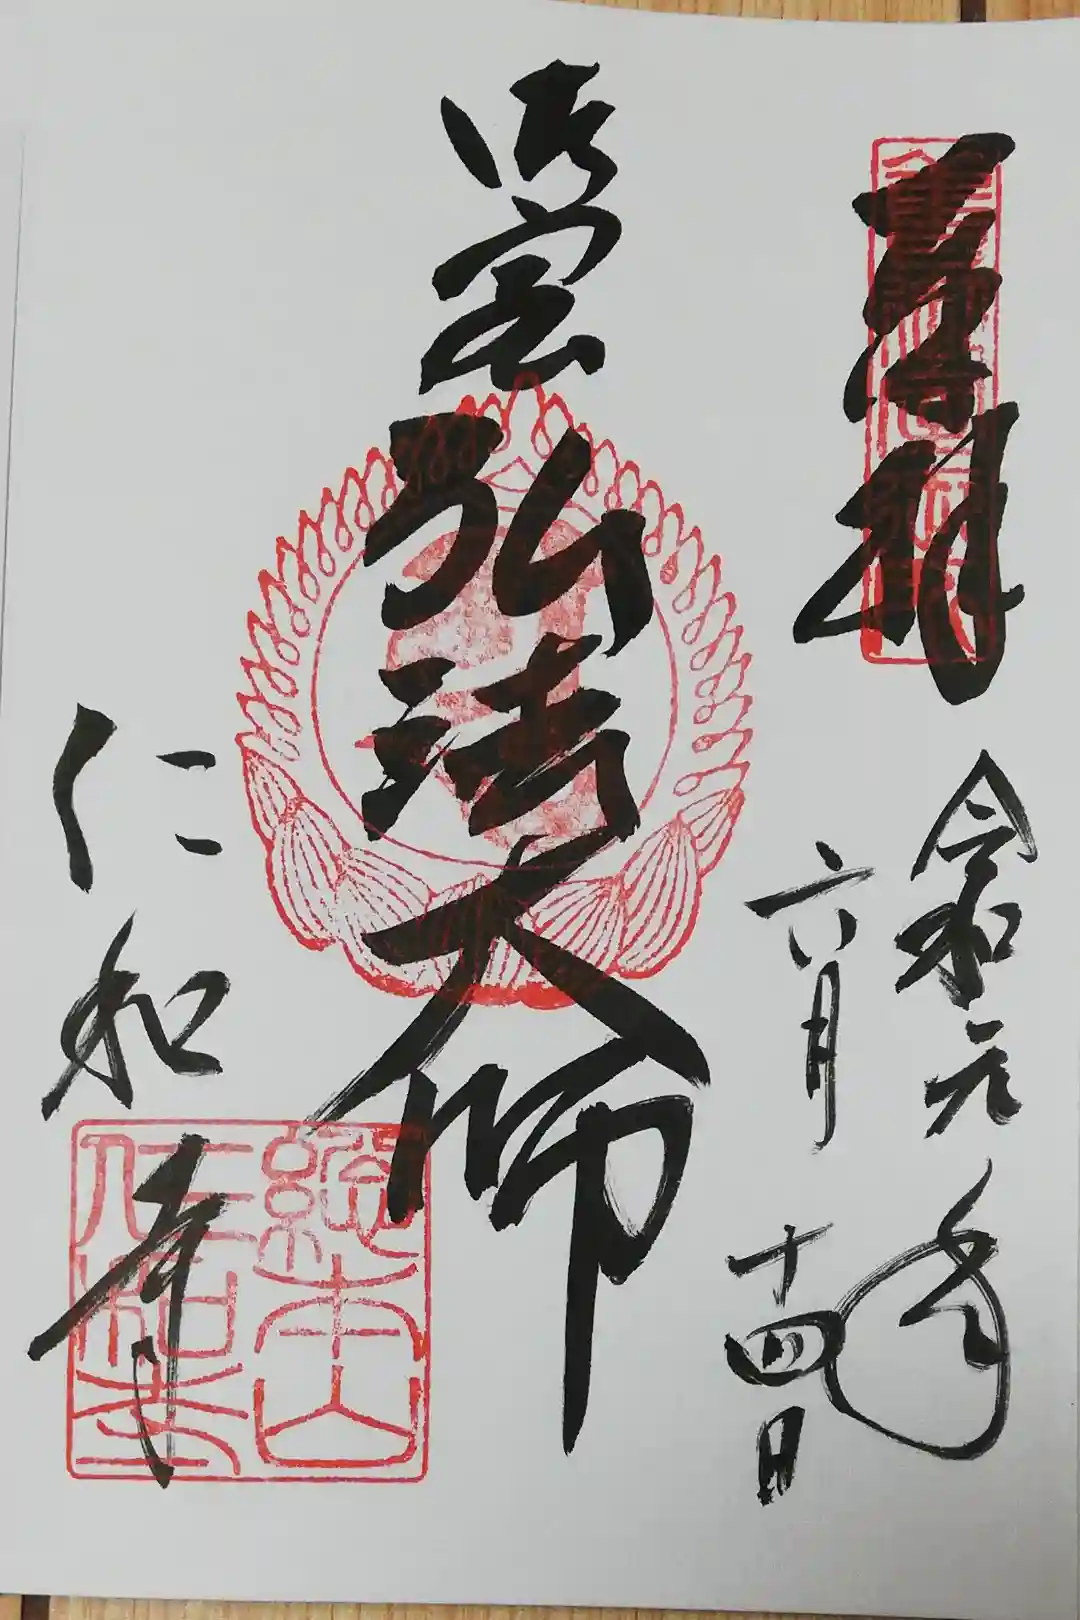 奉拝
令和元年
六月十四日
御室
弘法大師
仁和寺
總本山
仁和寺